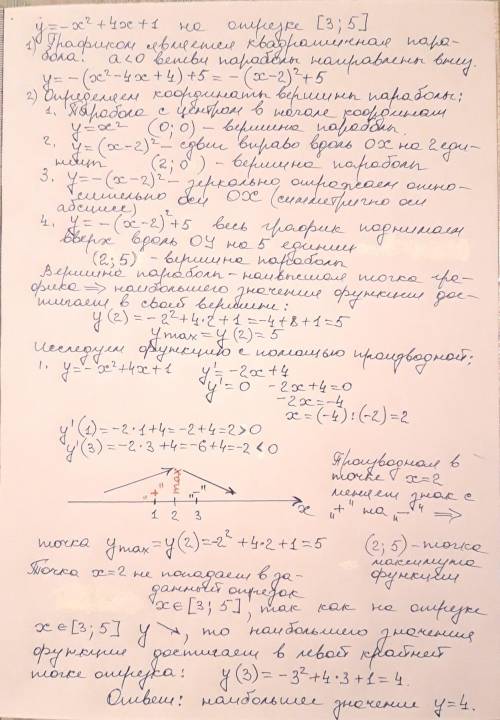 y=-x²+4x+1 на отрезке [3;5]
1) Графиком является квадратичная пара-
бола: a<0 ветви параболы направлены вниз.
y=-(x²-4x+4)+5=-(x-2)²+5
2) Определяем координаты вершины параболы:
1. Парабола с центром в начале координат
y=x² (0;0) - вершина параболы.
2. y=(x-2)² - сдвиг вправо вдоль OX на 2 еди-
ницы (2;0) - вершина параболы
3. y=-(x-2)² - зеркально отражаем отно-
сительно оси OX (симметрично оси
абсцисс)
4. y=-(x-2)²+5 весь график поднимаем
вверх вдоль OY на 5 единиц
(2;5) - вершина параболы
Вершина параболы - наивысшая точка гра-
фика ⇒ наибольшего значения функция дос-
тигает в своей вершине:
y(2)=-2²+4·2+1=-4+8+1=5
ymax=y(2)=5
Исследуем функцию с помощью производной:
1. y=-x²+4x+1 y'=-2x+4
y'=0 -2x+4=0
-2x=-4
x=(-4):(-2)=2
y'(1)=-2·1+4=-2+4=2>0
y'(3)=-2·3+4=-6+4=-2<0
"+" max "-"
1 2 3 x
Производная в
точке x=2
меняет знак с
"+" на "-" ⇒
точка ymax=y(2)=-2²+4·2+1=5 (2;5) - точка
максимума
функции
Точка x=2 не попадает в за-
данный отрезок
x∈[3;5], так как на отрезке
x∈[3;5] y↘, то наибольшего значения
функция достигает в левой крайней
точке отрезка: y(3)=-3²+4·3+1=4.
Ответ: наибольшее значение y=4.